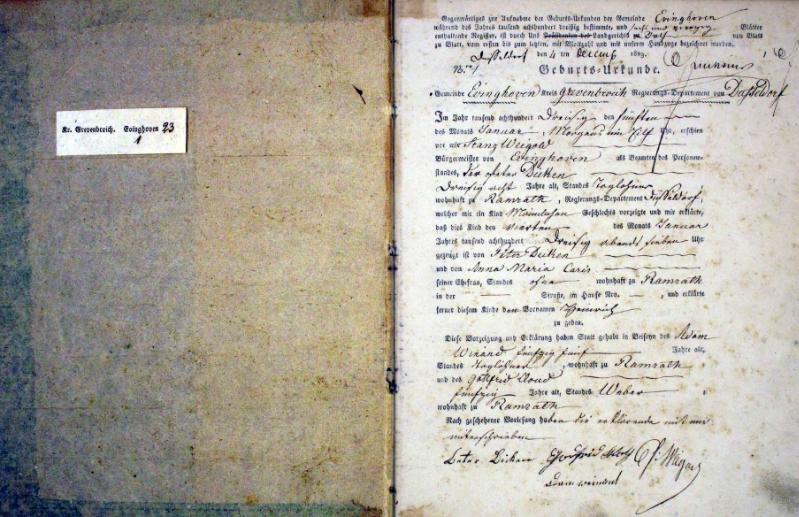 Kr. Grevenbroich. Evinghoven 23
1
Gegenwärtiges zur Aufnahme der Geburts-Urkunden der Gemeinde Evinghoven
während des Jahres tausend achthundert dreißig bestimmte, und Blätter
enthaltende Register, ist durch Uns Präsidenten des Landgerichts zu von Blatt
zu Blatt, vom ersten bis zum letzten, mit Blattzahl und mit unserm Handzuge bezeichnet worden.
Düsseldorf den 4 ten 1829.
Geburts-Urkunde.
Gemeinde Evinghoven Kreis Grevenbroich Regierungs-Departement von Düsseldorf
Im Jahr tausend achthundert Dreisig den fünften
des Monats Januar, Morgens um Elf Uhr, erschien
vor mir Franz Weigold
Bürgermeister von Evinghoven als Beamten des Personen-
standes, der Peter Dicken
Dreisig acht Jahre alt, Standes Taglohner
wohnhaft zu Ramrath, Regierungs-Departement Düsseldorf,
welcher mir ein Kind Männlichen Geschlechts vorzeigte und mir erklärte,
daß dies Kind den vierten des Monats Januar
Jahres tausend achthundert Dreisig abends sieben Uhr
gezeugt ist von Peter Dicken
und von Anna Maria Caris
seiner Ehefrau, Standes ohne wohnhaft zu Ramrath
in der Straße, im Hause Nro. und erklärte
ferner diesem Kinde den Vornamen Heinrich
zu geben.
Diese Vorzeigung und Erklärung haben Statt gehabt in Beiseyn des Adam
Winand fünfzig fünf Jahre alt,
Standes Taglohner, wohnhaft zu Ramrath
und des Gottfried
fünfzig Jahre alt, Standes Weber
wohnhaft zu Ramrath
Nach geschehener Vorlesung haben die erklärende mit mir
unterschrieben
Peter Dicken